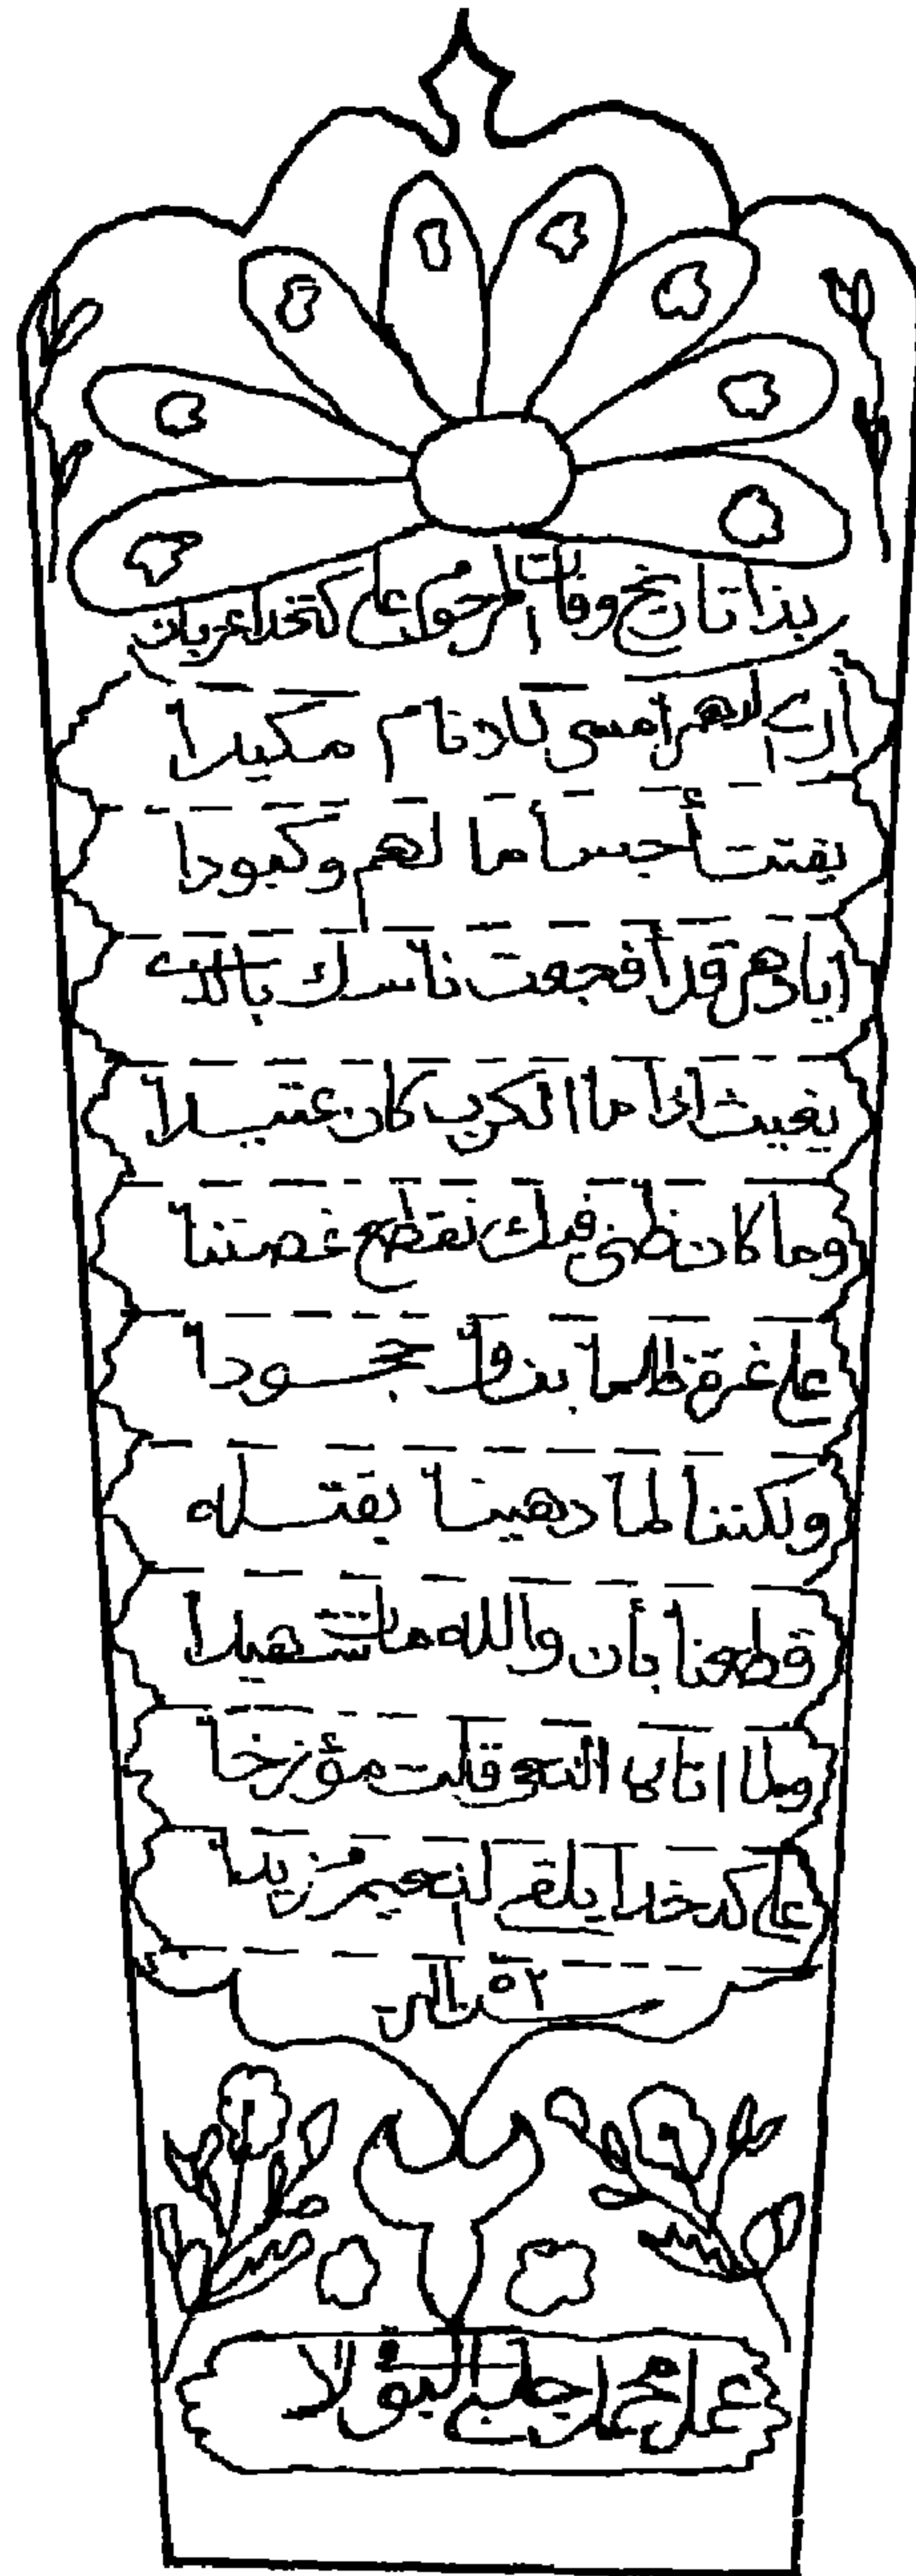 بذا تاريخ وفات المرحوم علي كتخدا عزبان
أرى الدهر امسى للانام مكيدا
يفتت أجساما لهم وكبودا
ايا دهر قد أفجعت ناسك بالذي
يغيث اذا ما الكرب كان عتيدا
وما كان ظني فيك تقطع غصننا
على غرة ظلما بذوا
ولكننا لما دهينا بقتله
قطعنا بأن والله مات شهيدا
ولما اتانا النعي قلت مؤرخا
علي كدخدا يلقى النعيم مزيدا
عمل محمد جلبي